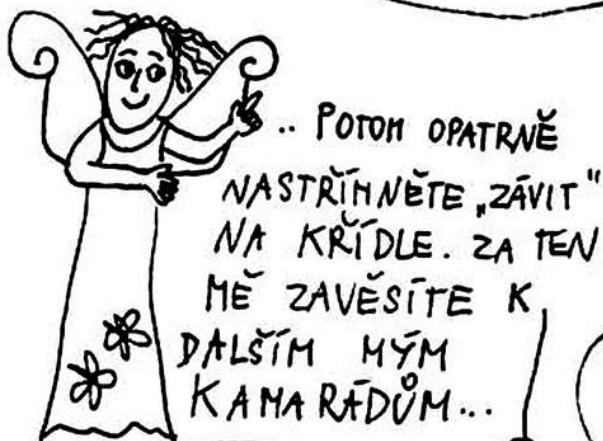 .. POTOM OPATRNĚ
NASTŘÍHNĚTE „ZÁVIT“
NA KŘÍDLE. ZA TEN
MĚ ZAVĚSÍTE K
DALŠÍM MÝM
KAMARÁDŮM...